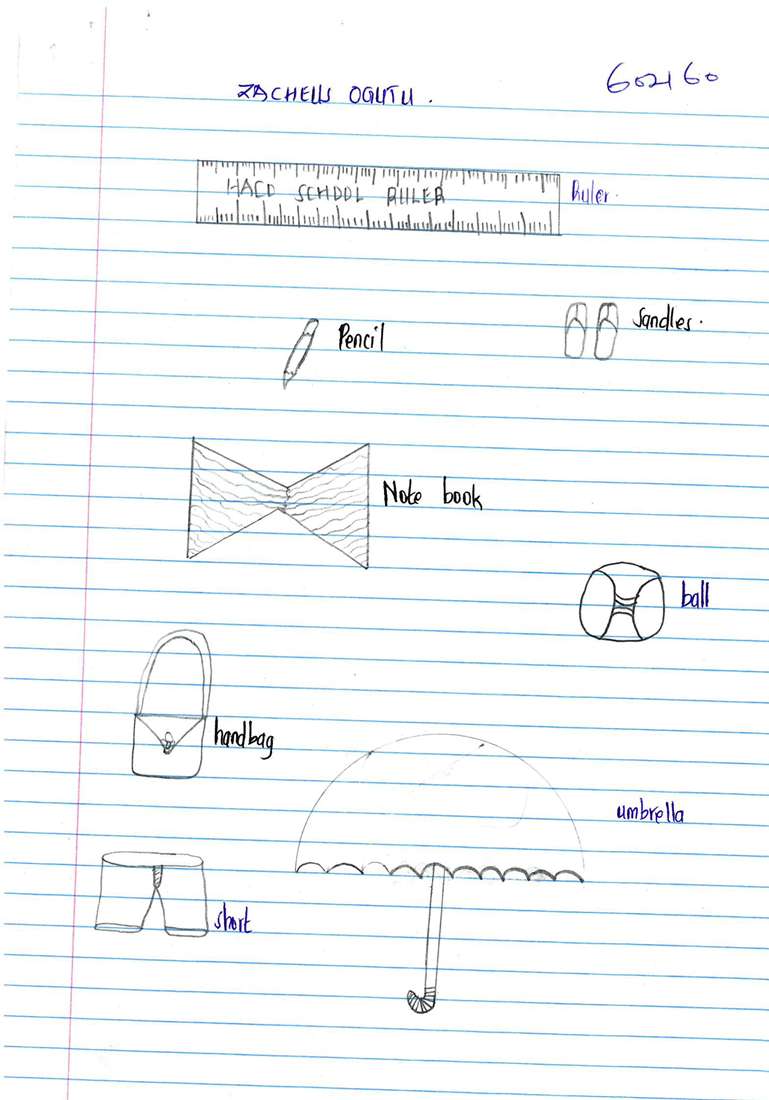 602160
ZACHEUS OGUTU .
HACO SCHOOL RULER
Ruler.
Sandles.
Pencil
Note book
ball
handbag
umbrella
short